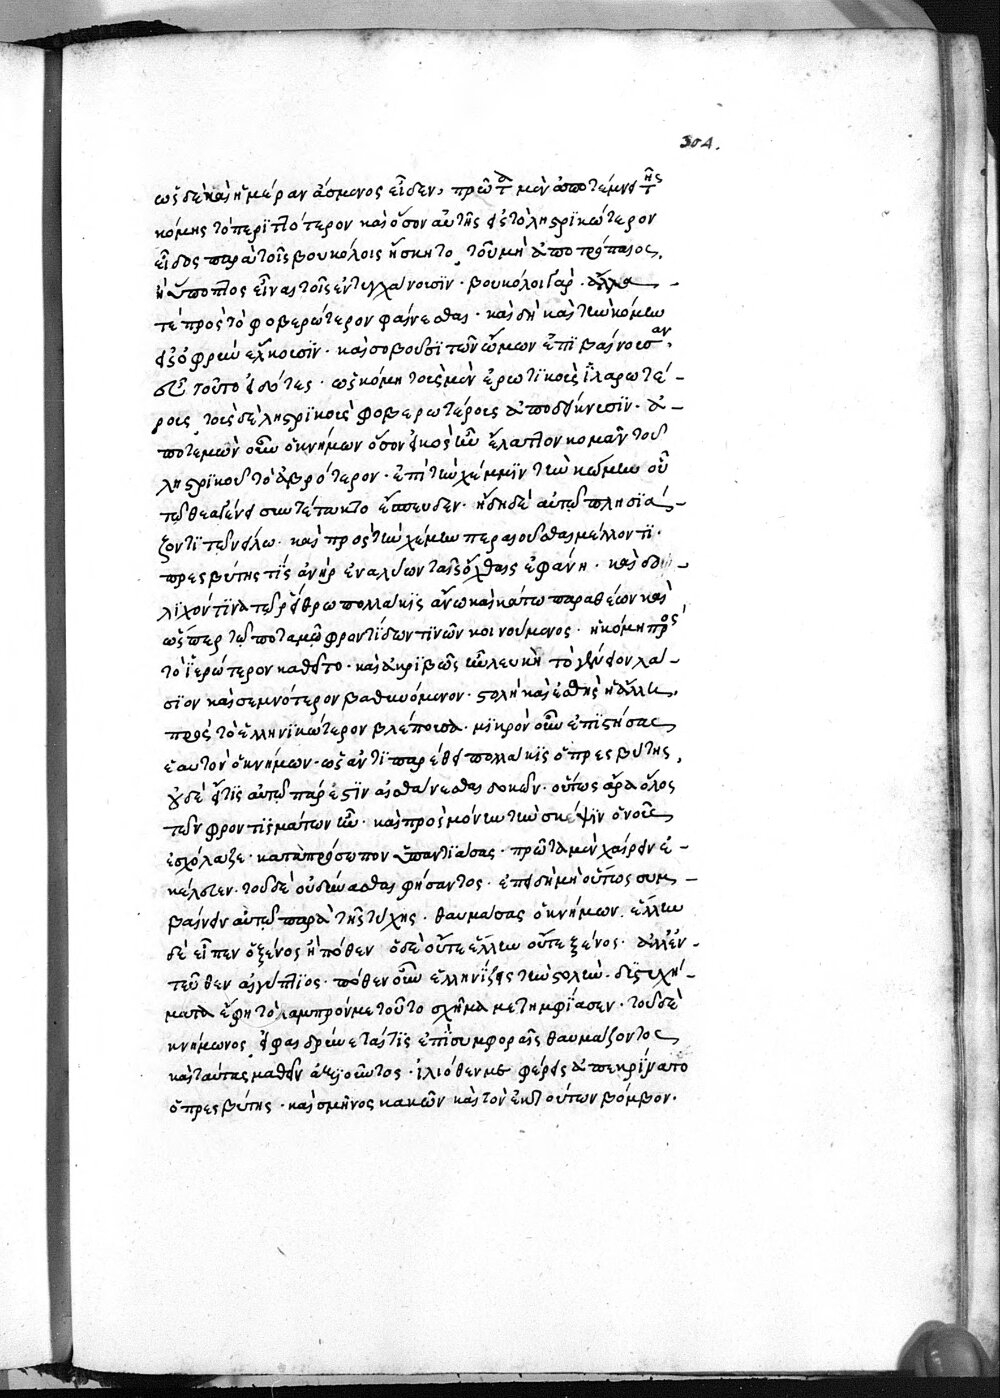 ὡς δὲ καὶ ἡμέραν ἄσμενος εἶδεν, πρῶτα μὲν ἀποτέμνει τῆς
κόμης τὸ περιττότερον καὶ ὅσον αὐτῆς εἰς τὸ ληστρϊκώτερον
εἶδος παρὰ τοῖς βουκόλοις ἤσκητο, τοῦ μὴ ἀποτρόπαιος,
ἢ ὕποπτος εἶναι τοῖς ἐντυγχάνουσϊν· βουκόλοι γὰρ· ἄλλα
τὲ πρὸς τὸ φοβερώτερον φαίνεσθαι· καὶ δὴ καὶ τὴν κόμην
εἰς ὀφρὺν ἕλκουσϊν· καὶ σοβοῦσϊ τῶν ὤμων ἐπϊβαίνουσαν·
εὖ τοῦτο εἰδότες· ὡς κόμη τοὺς μὲν ἐρωτϊκοὺς ἱλαρωτέ-
ρους, τοὺς δὲ ληστρϊκοὺς φοβερωτέρους ἀποδείκνυσϊν· ἀ-
ποτεμὼν οὖν ὁ κνήμων ὅσον εἰκὸς ἦν ἔλαττον κομᾶν τοῦ
ληστρϊκοῦ τὸ ἁβρότερον· ἐπὶ τὴν χέμμϊν τὴν κώμην οὗ
τῷ θεαγένει συνετέτακτο ἔσπευδεν· ἤδη δὲ αὐτῷ πλησϊά-
ζοντϊ τῷ νείλω· καὶ πρὸς τὴν χέμμιν περαιοῦσθαι μέλλοντϊ·
πρεσβύτης τὶς ἀνὴρ ἐναλύων ταῖς ὄχθαις ἐφάνη· καὶ δο-
λϊχόν τϊνα τῷ ῥείθρω πολλακϊς ἄνω καὶ κάτω παραθέων καὶ
ὥσπερ τῷ ποταμῷ φροντϊδων τϊνῶν κοινούμενος· ἡ κόμη πρὸς
τὸ ϊερώτερον καθεῖτο· καὶ ἀκρϊβῶς ἦν λευκὴ τὸ γένειον λά-
σϊον καὶ σεμνότερον βαθυνόμενον· στολὴ καὶ ἐσθὴς ἡ ἄλλη,
πρὸς τὸ ἑλληνϊκώτερον βλέπουσα· μϊκρὸν οὖν ἐπϊστήσας
ἑαυτὸν ὁ κνήμων· ὡς ἀντϊπαρέθει πολλακϊς ὁ πρεσβύτης,
οὐδὲ εἴ τϊς αὐτῷ πάρεστϊν αἰσθάνεσθαι δοκῶν· οὕτως ἄρα ὅλος
τῶν φροντϊσμάτων ἦν· καὶ πρὸς μόνην τὴν σκέψϊν ὁ νοῦς
ἐσχόλαζε· κατὰ πρόσωπον ὑπαντϊάσας· πρῶτα μὲν χαίρειν ἐ-
κέλευεν· τοῦ δὲ οὐ δύνασθαι φήσαντος· ἐπειδὴ μὴ οὕτως συμ-
βαίνειν αὐτῷ παρὰ τῆς τύχης· θαυμάσας ὁ κνήμων. ἕλλην
δὲ εἶπεν ὁ ξένος ἢ πόθεν ὁ δὲ οὔτε ἕλλην οὔτε ξένος· ἀλλ' ἐν-
τεῦθεν αἰγύπτϊος· πόθεν οὖν ἑλληνίζεις τὴν στολὴν· δϋστυχή-
ματα ἔφη τὸ λαμπρόν με τοῦτο σχῆμα μετημφίασεν· τοῦ δὲ
κνήμωνος, εἰ φαιδρύνεταί τϊς ἐπὶ συμφοραῖς θαυμάζοντος
καὶ ταύτας μαθεῖν ἀξιοῦντος· ἰλιόθεν με φέρεις ἀπεκρίνατο
ὁ πρεσβύτης· καὶ σμῆνος κακῶν καὶ τὸν ἐκ τούτων βόμβον·